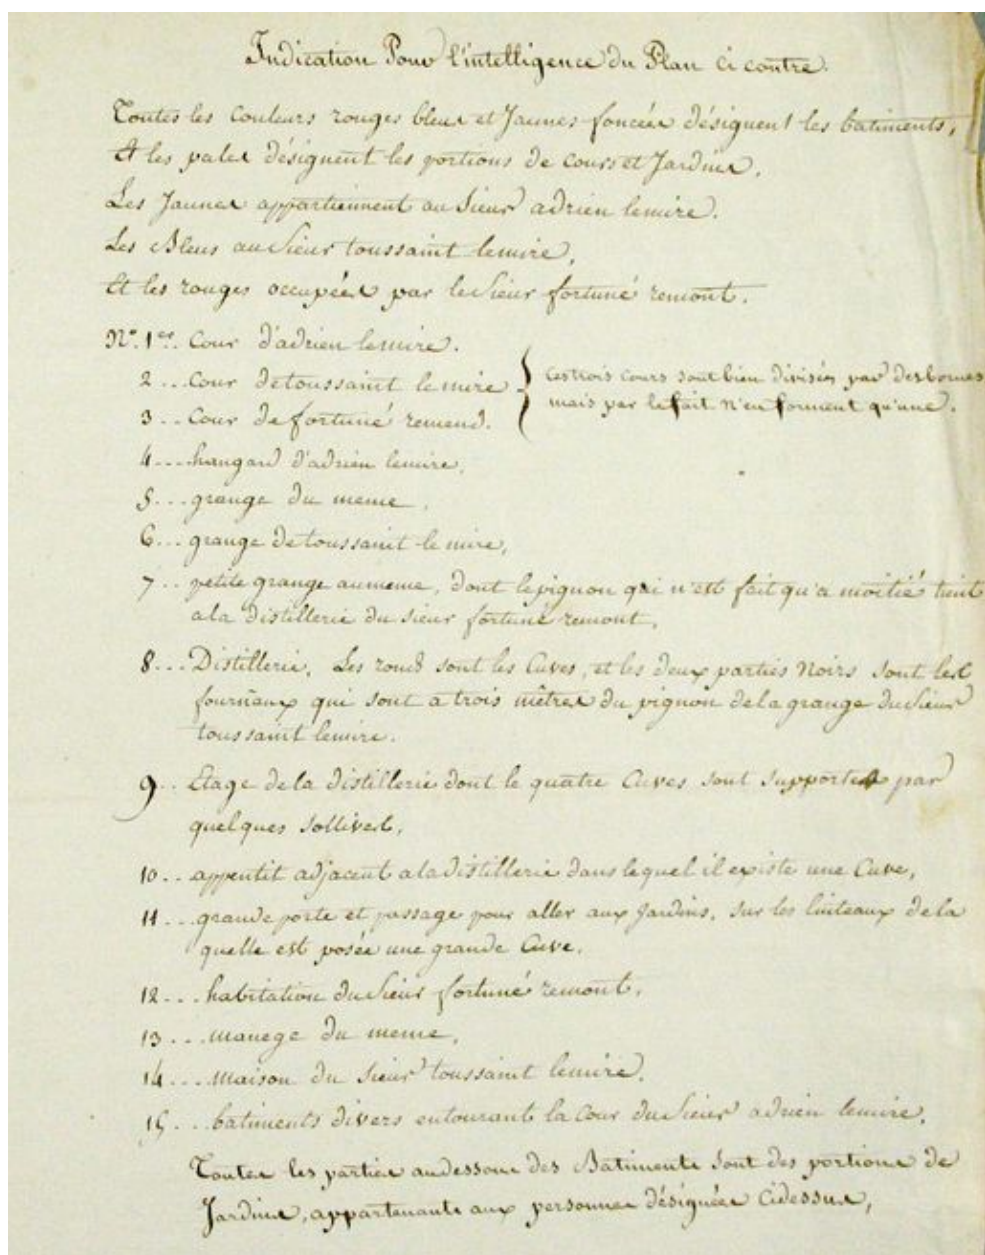 Indication Pour l'intelligence du Plan ci contre.
Toutes les couleurs rouges bleues et Jaunes foncées désignent les batiments,
Et les pales désignent les portions de cours et Jardins.
Les Jaunes appartiennent au Sieur adrien lemire.
Les Bleus au Sieur toussaint lemire,
Et les rouges occupées par le Sieur fortuné remont.
N.° 1er. Cour d'adrien lemire.
2 .. Cour de toussaint lemire
3 .. Cour de fortuné remend.
Ces trois cours sont bien divisées par des bornes
mais par le fait n'en forment qu'une.
4 ... hangard d'adrien lemire,
5 ... grange du meme,
6 ... grange de toussaint lemire,
7 .. petite grange au meme, dont le pignon qui n'est fait qu'a moitié tient
a la distillerie du sieur fortuné remont,
8 ... Distillerie, Les ronds sont les Cuves, et les deux parties Noirs sont les
fourneaux qui sont a trois mètres du pignon de la grange du Sieur
toussaint lemire.
9 .. Etage de la distillerie dont le quatre Cuves sont supportes par
quelques sollives,
10 .. appentit adjacent a la distillerie dans lequel il existe une Cuve,
11 ... grande porte et passage pour aller aux Jardins, sur les linteaux de la
quelle est posée une grande Cuve,
12 ... habitation du Sieur fortuné remont,
13 ... manege du meme,
14 .... maison du Sieur toussaint lemire,
15 ... batiments divers entourant la Cour du Sieur adrien lemire,
Toutes les parties audessous des Batiments sont des portions de
Jardins, appartenants aux personnes désignées Cidessus,